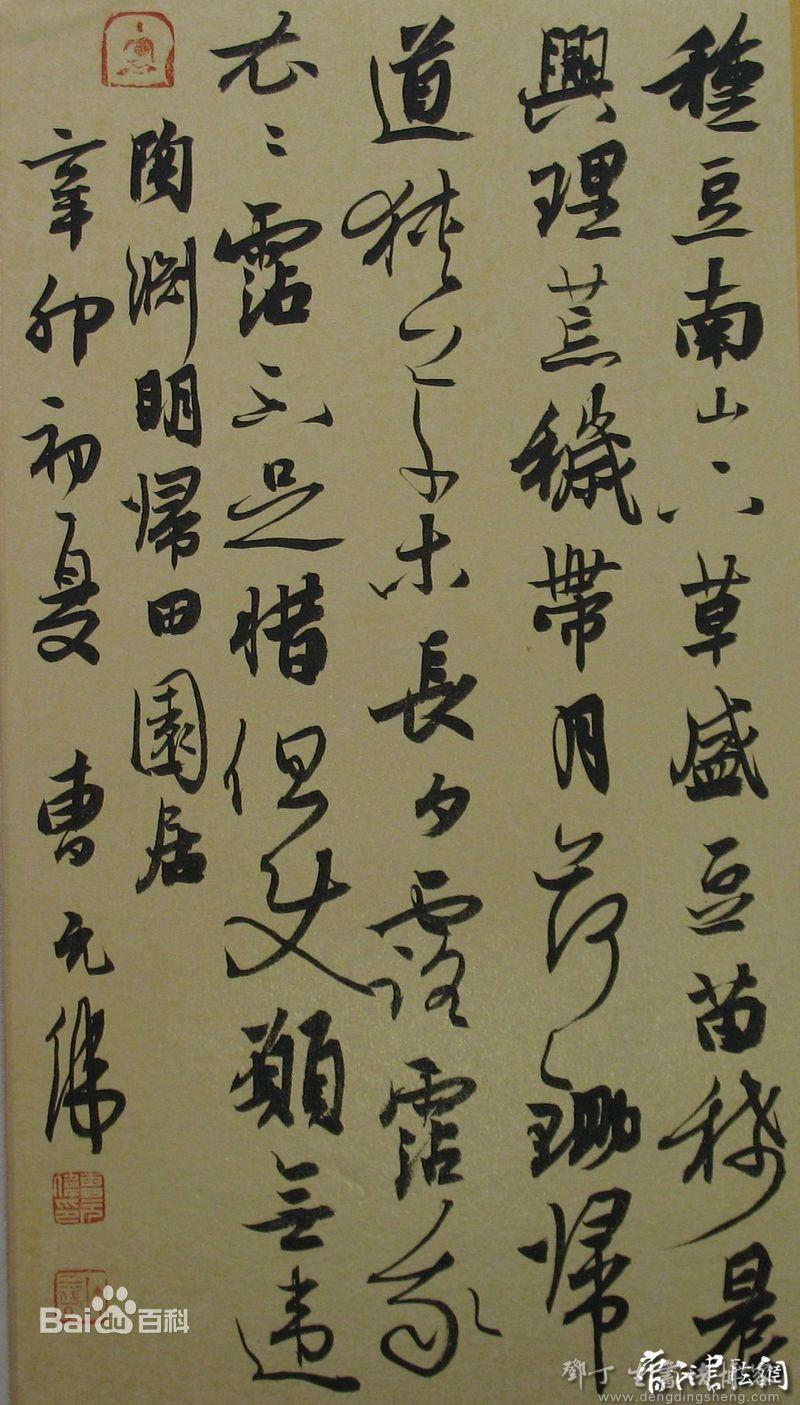 種豆南山下草盛豆苗稀晨
興理荒穢帶月荷鋤歸
道狹草木長夕露霑我
衣〻霑不足惜但使願無違
陶淵明歸田園居
辛卯初夏 曹元偉
Bai百科
www.dengdingsheng.com